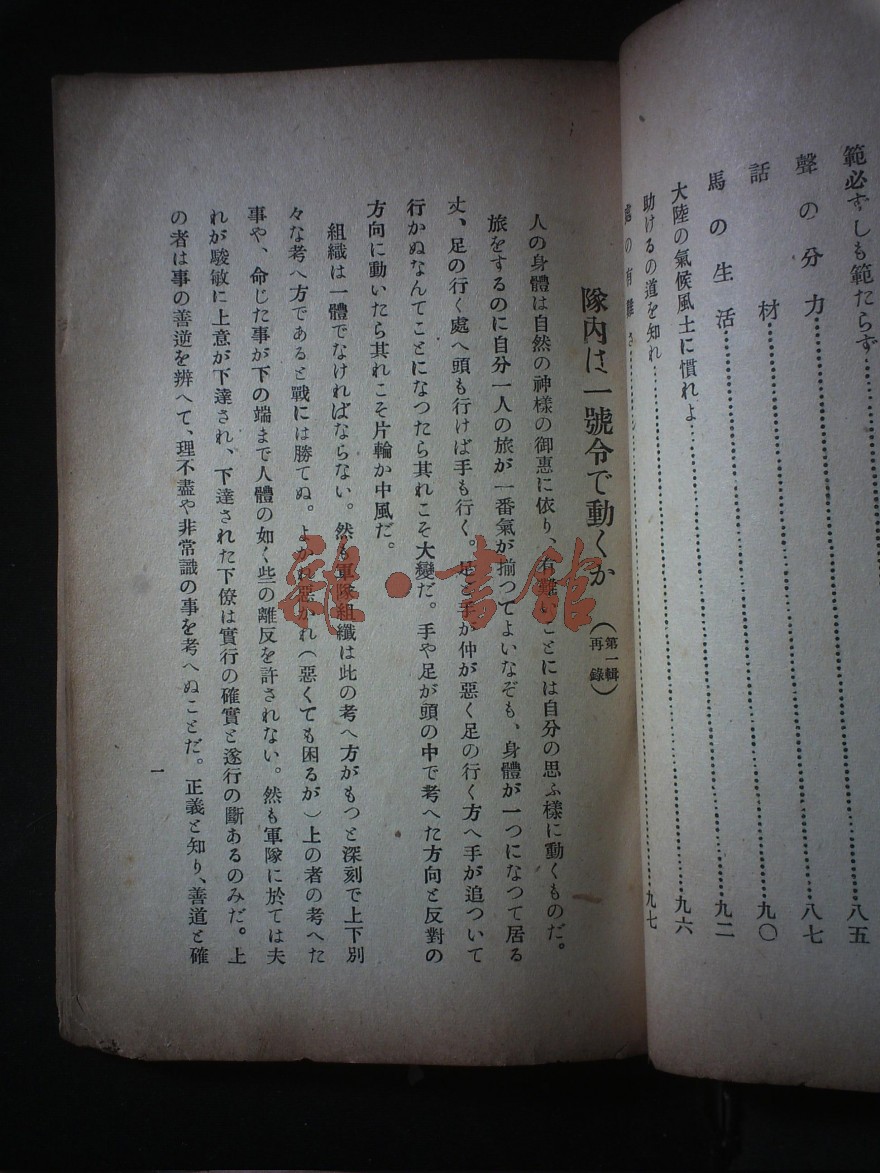 範必ずしも範たらず……八五
聲の分力……八七
話材……九〇
馬の生活……九二
大陸の氣候風土に慣れよ……九六
助けるの道を知れ……九七
の有難さ……
隊內は一號令で動くか（第一輯再錄）
人の身體は自然の神樣の御惠に依り、有難いことには自分の思ふ樣に動くものだ。
旅をするのに自分一人の旅が一番氣が揃つてよいなぞも、身體が一つになつて居る
丈、足の行く處へ頭も行けば手も行く。足と手が仲が惡く足の行く方へ手が追ついて
行かぬなんてことになつたら其れこそ大變だ。手や足が頭の中で考へた方向と反對の
方向に動いたら其れこそ片輪か中風だ。
組織は一體でなければならない。然も軍隊組織は此の考へ方がもつと深刻で上下別
々な考へ方であると戰には勝てぬ。よかれ惡かれ（惡くても困るが）上の者の考へた
事や、命じた事が下の端まで人體の如く些の離反を許されない。然も軍隊に於ては夫
れが駿敏に上意が下達され、下達された下僚は實行の確實と遂行の斷あるのみだ。上
の者は事の善逆を辨へて、理不盡や非常識の事を考へぬことだ。正義と知り、善道と確
一
雜·書館